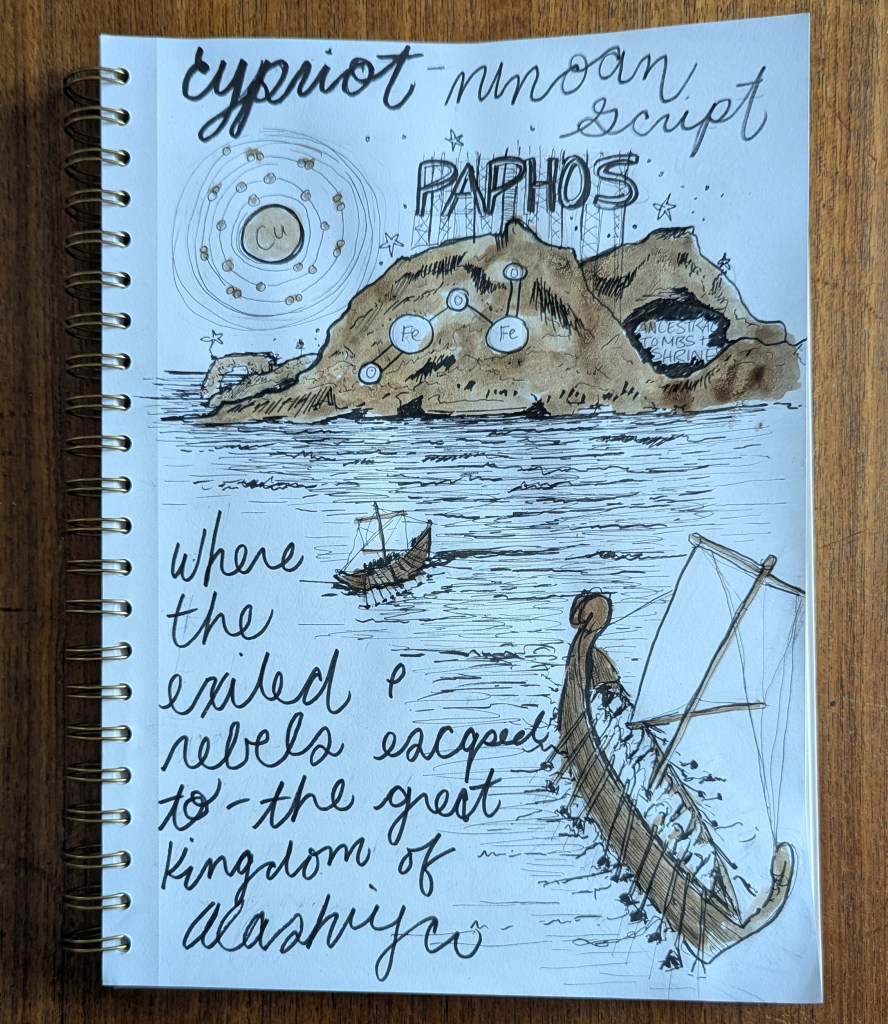 cypriot - minoan
script
PAPHOS
Cu
O
O
Fe
Fe
O
ANCESTRAL
TOMBS +
SHRINE
Where
the
exiled &
rebels escaped
to - the great
Kingdom of
Alashiya